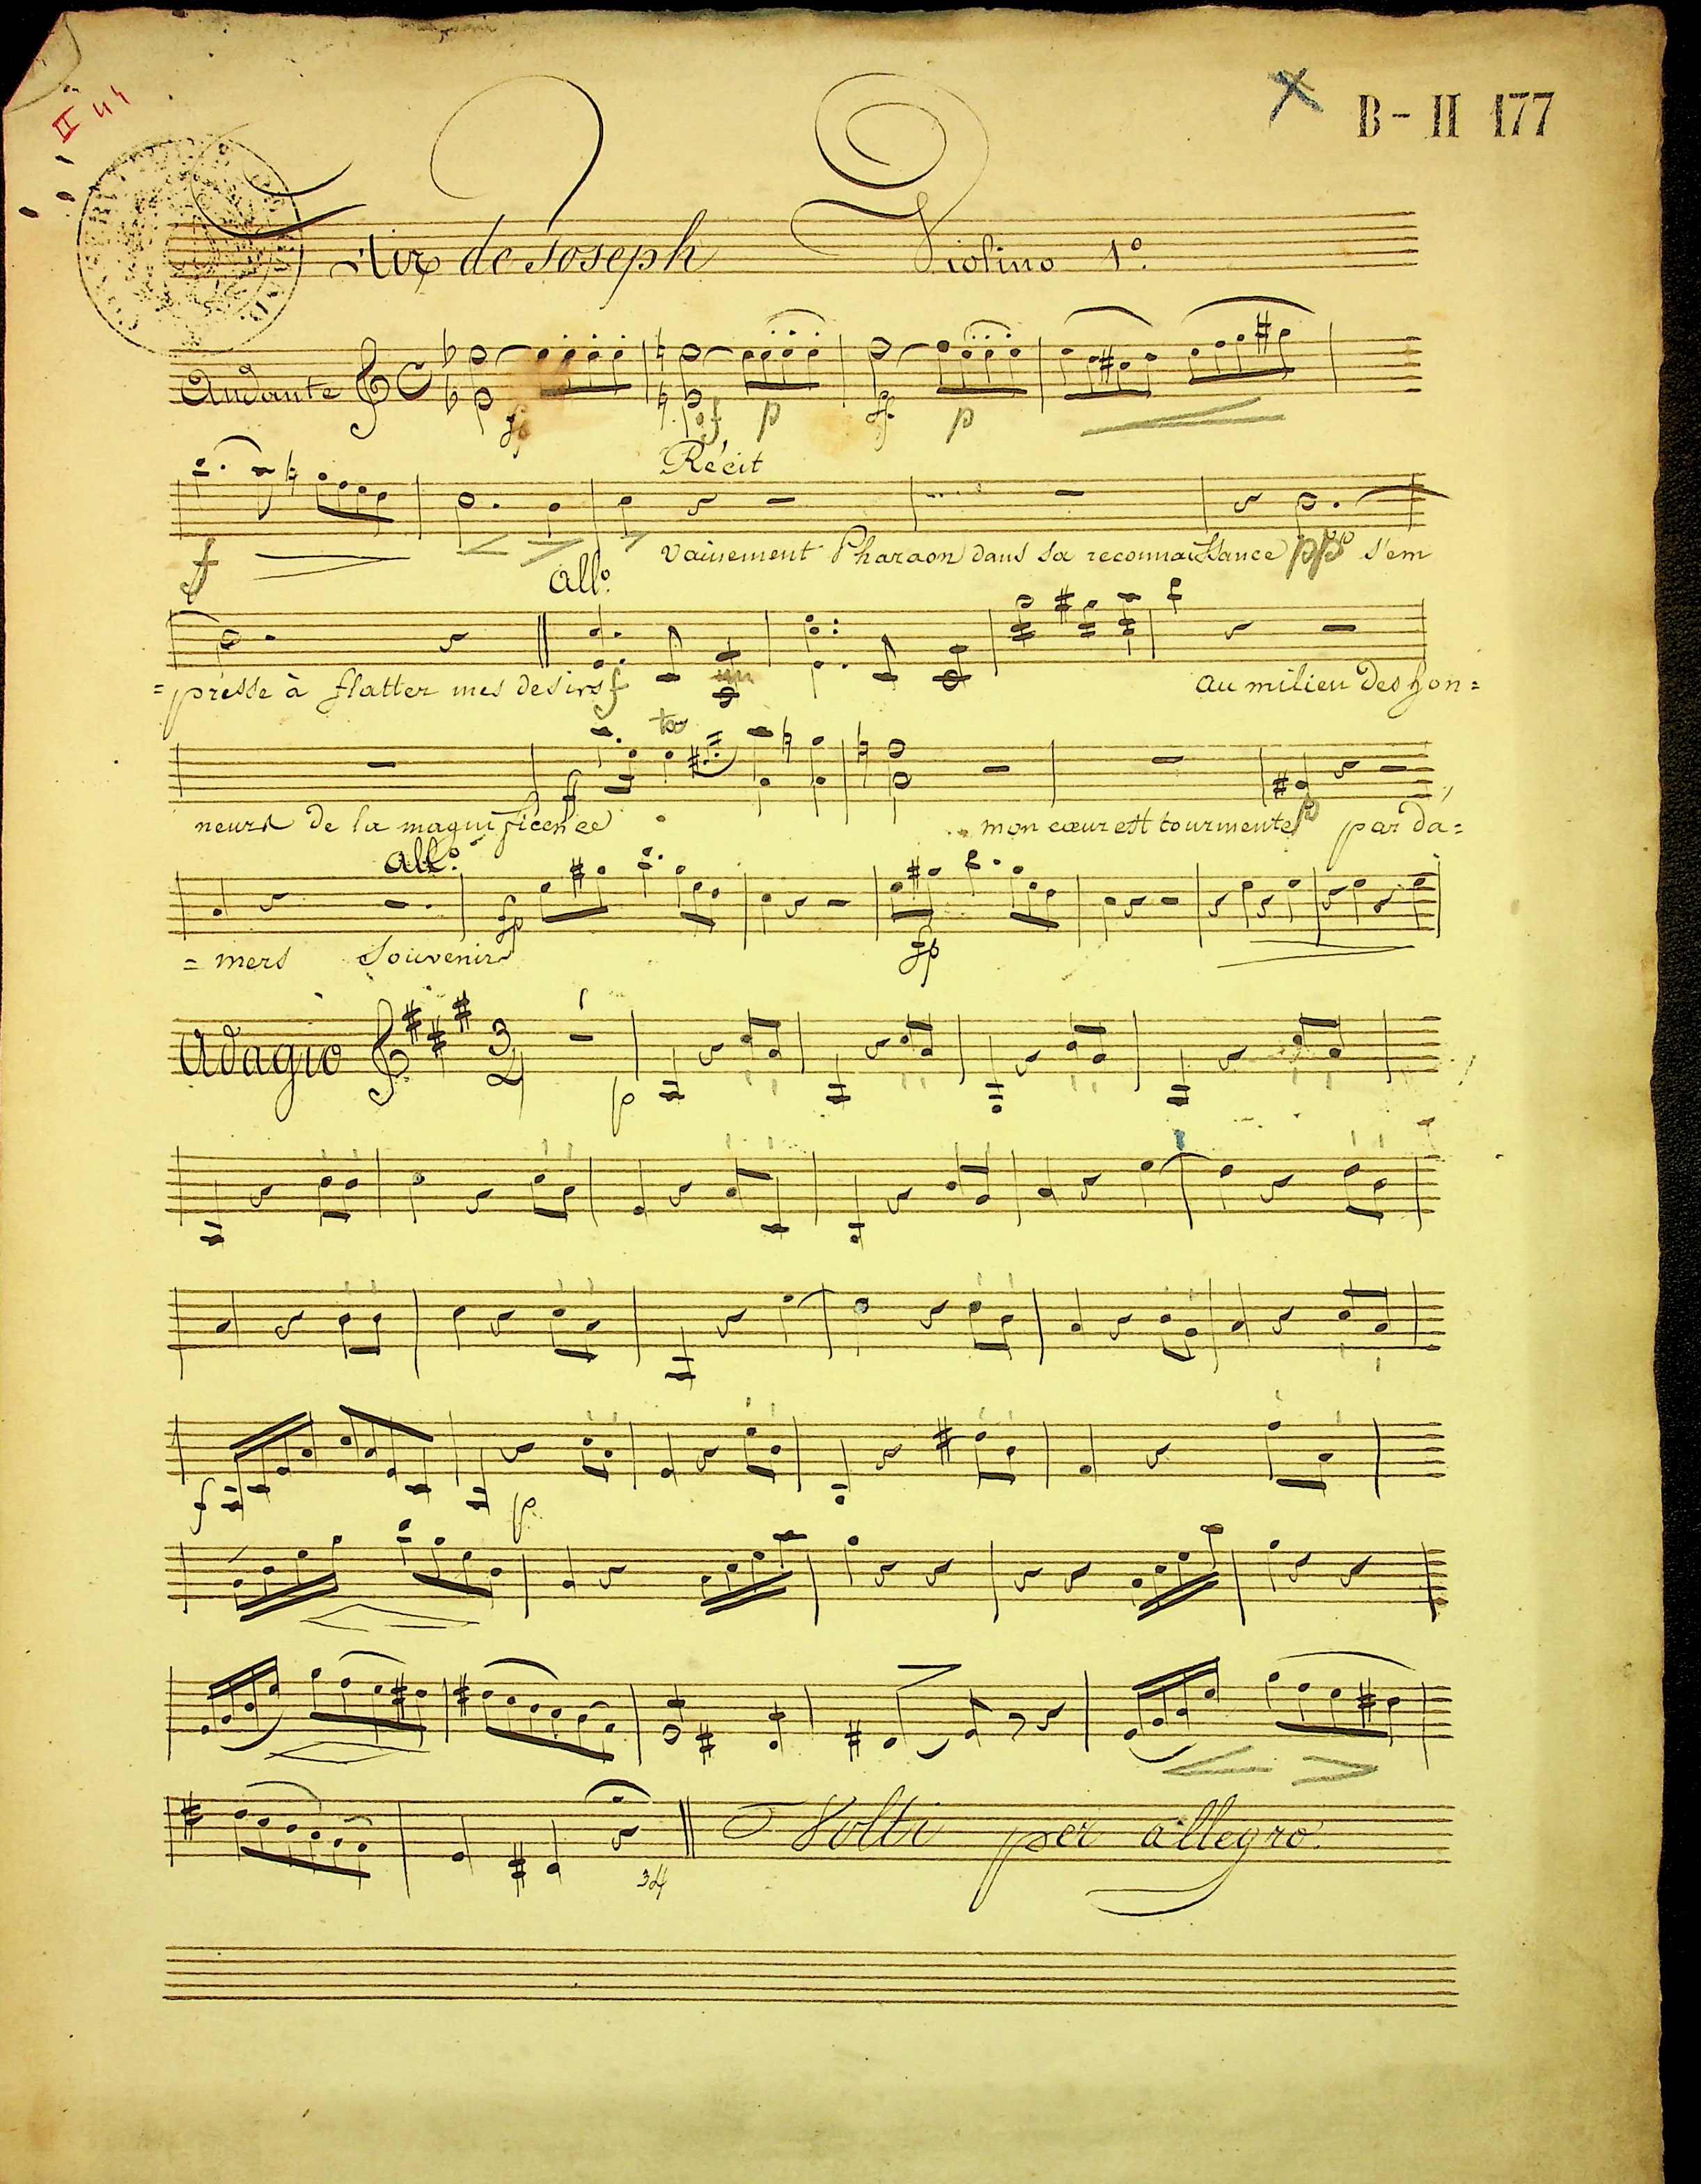 II 44
B - II 177
Air de Joseph Violino 1º.
Andante
sf p ff p
Récit
f vainement Pharaon dans sa reconnaissance ppp s'em
allº.
=presse à flatter mes desirs f au milieu des hon=
neurs de la magnificence f mon cœur est tourmenté p par da=
allº.
= mers Souvenirs fp fp
Adagio 3 4 p
f p.
34 Volti per allegro.